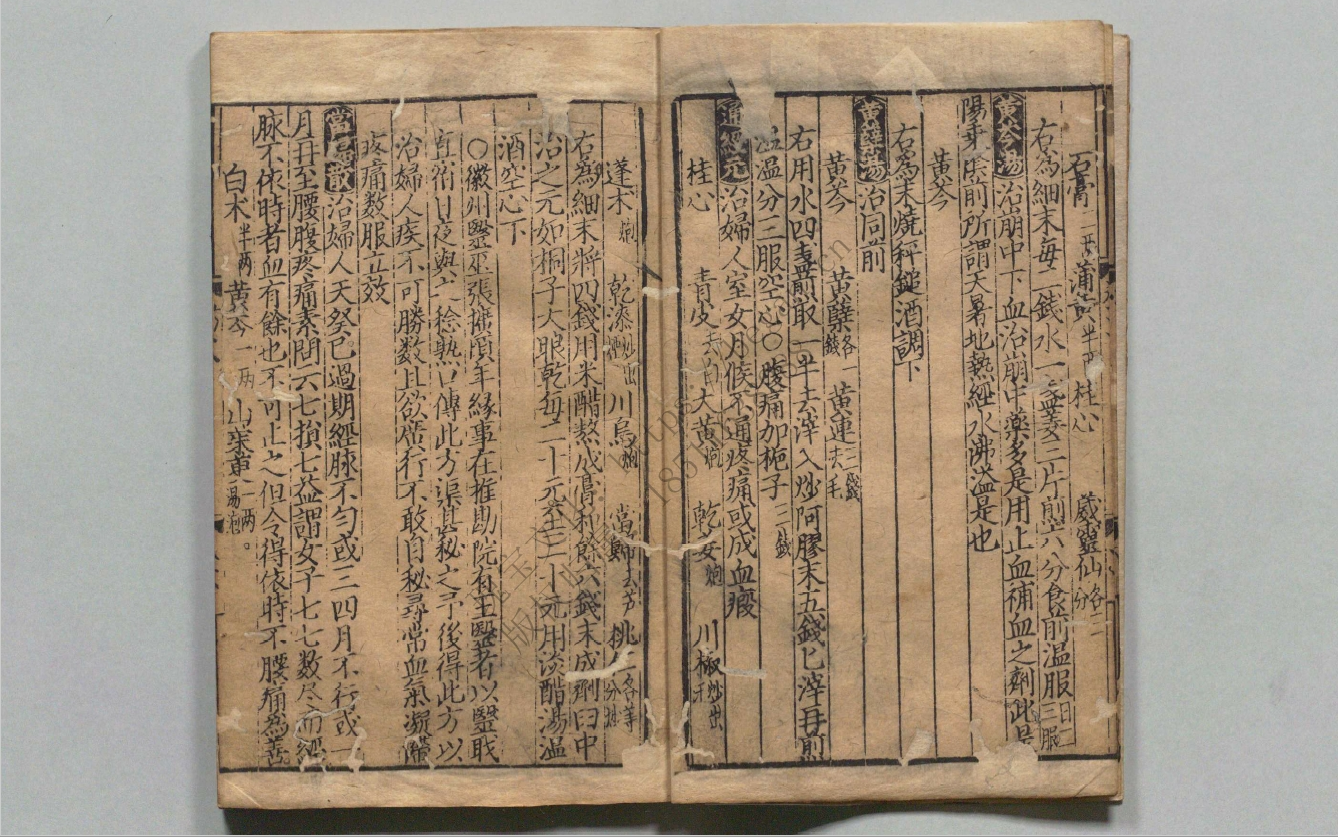 石膏二两 蒲黃半两 桂心 葳靈仙各二分
右為細末每二錢水一盞姜三片煎六分食前温服日二三服
黃芩湯治崩中下血治崩中藥多是用止血補血之劑此是
陽乗陰前所謂天暑地熱經水沸溢是也
黃芩
右為末燒秤鎚酒調下
黃蘖湯治同前
黃芩 黃蘖各一錢 黃連去毛三錢
右用水四盞煎取一半去滓入炒阿膠末五錢匕滓再煎
温分三服空心○腹痛加梔子二錢
通經元治婦人室女月候不通疼痛或成血瘕
桂心 青皮去白 大黃炮 乾姜炮 川椒炒出汗
蓬朮炮 乾漆炒出煙 川烏炮 當歸去芦 桃仁各等分炒
右為細末將四錢用米醋熬成膏和餘六錢末成劑臼中
治之元如桐子大晾乾每二十元至三十元用淡醋湯温
酒空心下
○徽州醫巫張擴頃年緣事在推勘院有王醫者以醫職
直宿日夜與之稔熟口傳此方渠甚秘之予後得此方以
治婦人疾不可勝数且欲廣行不敢自秘尋常血氣凝滯
疼痛数服立效
當歸散治婦人天癸已過期經脉不匀或三四月不行或一
月再至腰腹疼痛素問云七損七益謂女子七七数尽而經
脉不依時者血有餘也不可止之但令得依時不腰痛為善
白朮半两 黃芩一两 山茱萸一两湯泡。